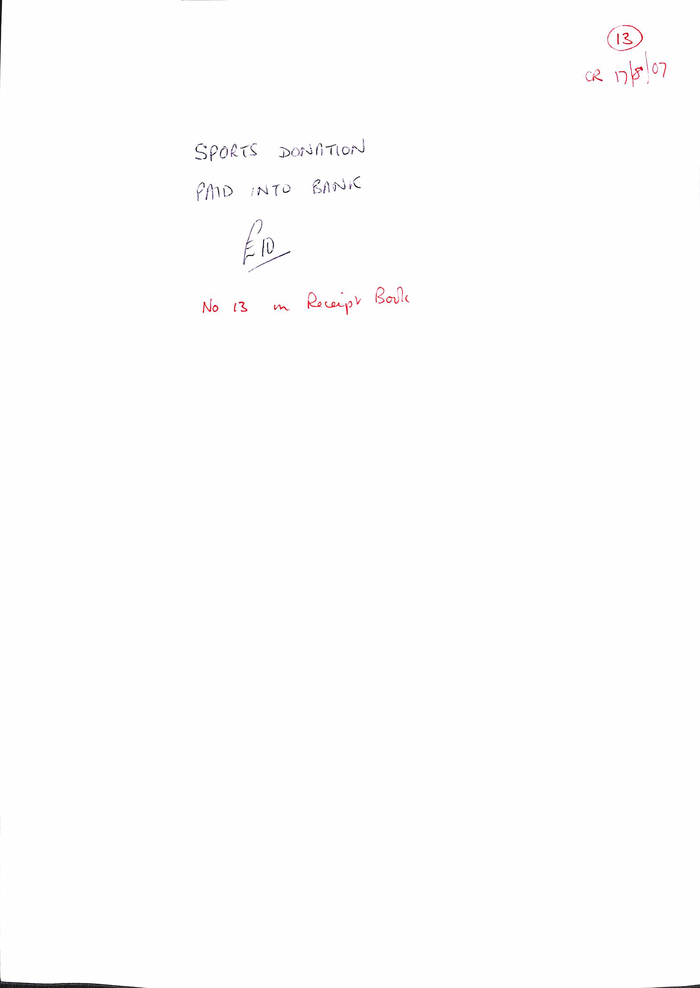 13
CR 17/8/07
SPORTS DONATION
PAID INTO BANK
£10
No 13 in Receipt Book